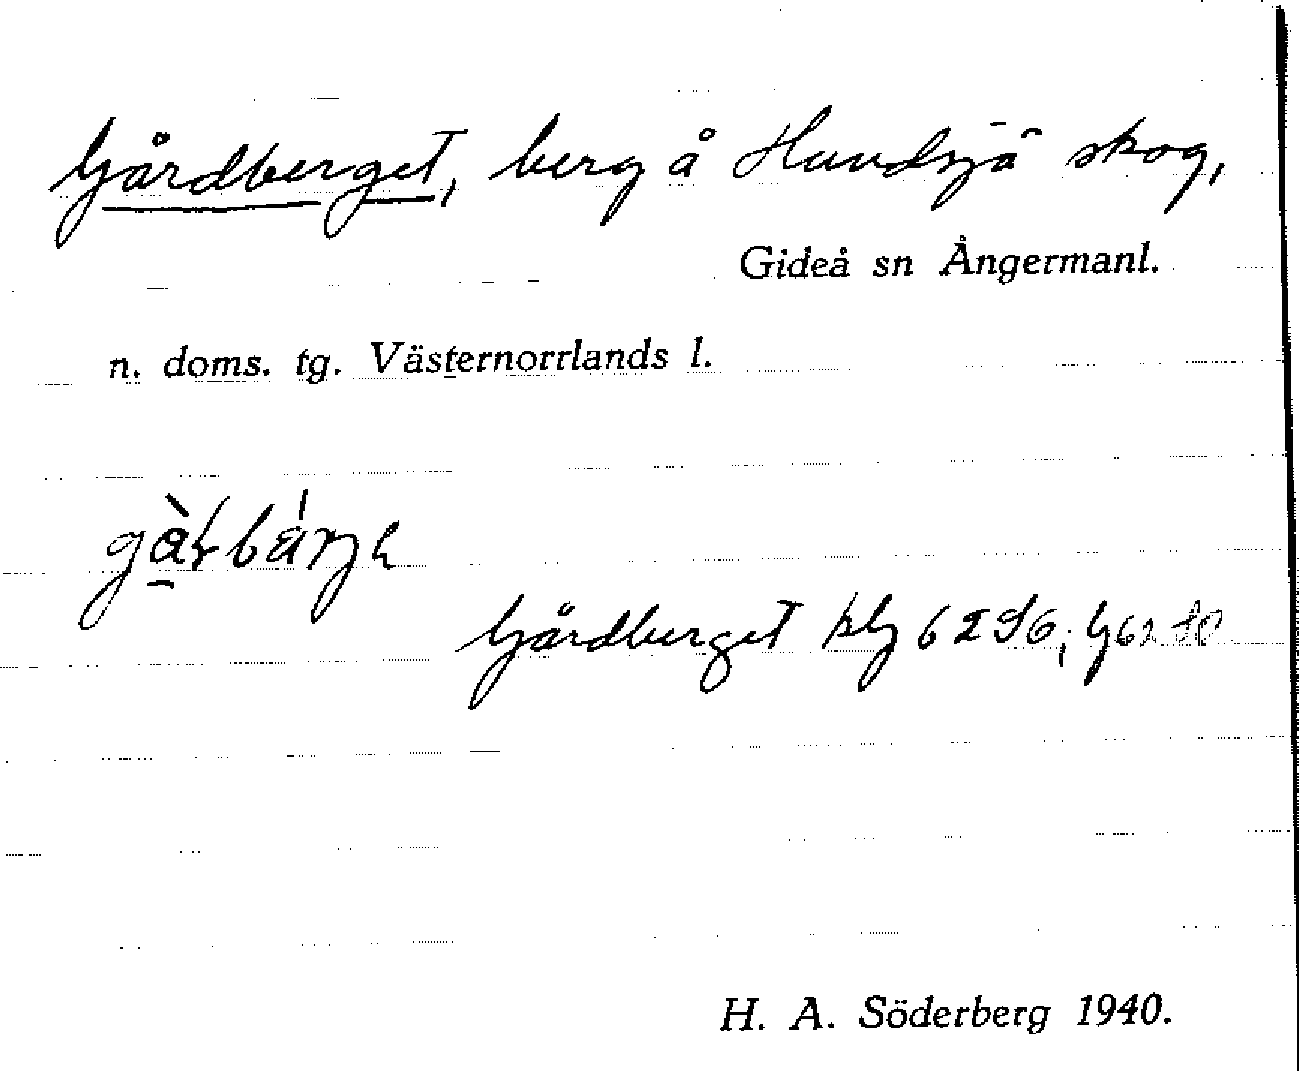 Gårdberget, berg å Hundsjö skog,
Gideå sn Ångermanl.
n. doms. tg. Västernorrlands l.
Gårdberget
H. A. Söderberg 1940.